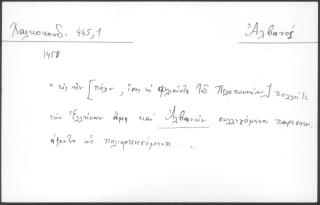 Χαλκοκονδ. 445,1
Ἀλβανός
1458
" εἰς τὴν [πόλιν, ἥτις εἰ Φλιοῦντα τῆς Πελοποννήσου] πολλοί τε
τῶν Ἑλλήνων ἅμα καὶ Ἀλβανῶν συλλεγόμενοι παρεσκευ-
άζοντο ὡς πολιορκησόμενοι "